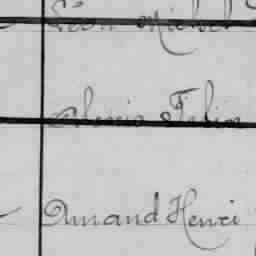 Léon Michel
Alexis Félix
Amand Henri